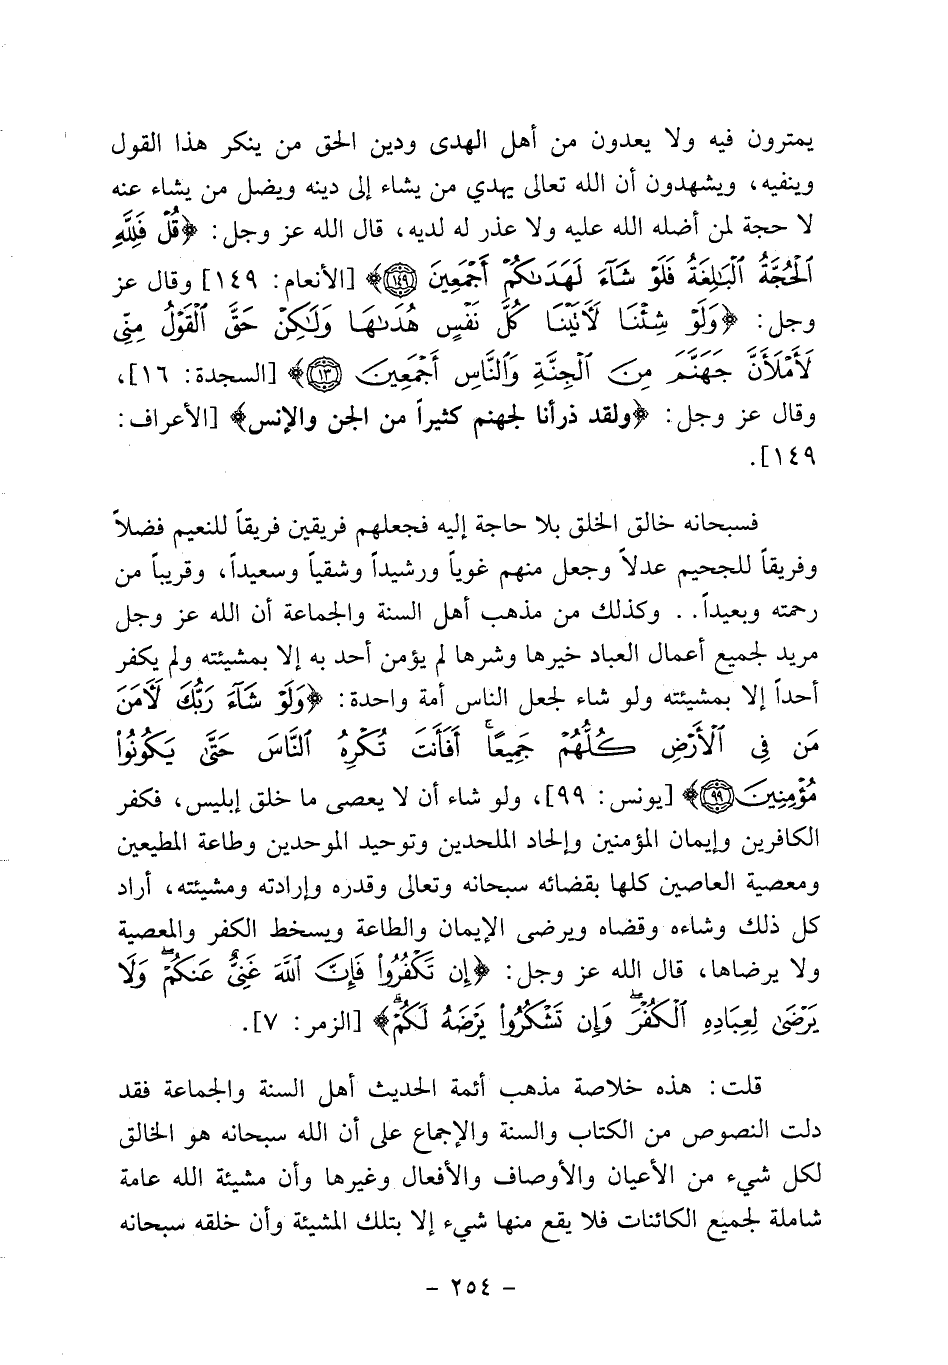 يمترون فيه ولا يعدون من أهل الهدى ودين الحق من ينكر هذا القول
وينفيه، ويشهدون أن الله تعالى يهدي من يشاء إلى دينه ويضل من يشاء عنه
لا حجة لمن أضله الله عليه ولا عذر له لديه، قال الله عز وجل: ﴿قُلْ فَلِلَّهِ
ٱلْحُجَّةُ ٱلْبَـٰلِغَةُ فَلَوْ شَآءَ لَهَدَىٰكُمْ أَجْمَعِينَ ﴿١٤٩﴾﴾ [الأنعام: ١٤٩] وقال عز
وجل: ﴿وَلَوْ شِئْنَا لَـَٔاتَيْنَا كُلَّ نَفْسٍ هُدَىٰهَا وَلَـٰكِنْ حَقَّ ٱلْقَوْلُ مِنِّى
لَأَمْلَأَنَّ جَهَنَّمَ مِنَ ٱلْجِنَّةِ وَٱلنَّاسِ أَجْمَعِينَ ﴿١٣﴾﴾ [السجدة: ١٦]،
وقال عز وجل: ﴿ولقد ذرأنا لجهنم كثيراً من الجن والإنس﴾ [الأعراف:
١٤٩].
فسبحانه خالق الخلق بلا حاجة إليه فجعلهم فريقين فريقاً للنعيم فضلاً
وفريقاً للجحيم عدلاً وجعل منهم غوياً ورشيداً وشقياً وسعيداً، وقريباً من
رحمته وبعيداً.. وكذلك من مذهب أهل السنة والجماعة أن الله عز وجل
مريد لجميع أعمال العباد خيرها وشرها لم يؤمن أحد به إلا بمشيئته ولم يكفر
أحداً إلا بمشيئته ولو شاء لجعل الناس أمة واحدة: ﴿وَلَوْ شَآءَ رَبُّكَ لَـَٔامَنَ
مَن فِى ٱلْأَرْضِ كُلُّهُمْ جَمِيعًا ۚ أَفَأَنتَ تُكْرِهُ ٱلنَّاسَ حَتَّىٰ يَكُونُوا۟
مُؤْمِنِينَ ﴿٩٩﴾﴾ [يونس: ٩٩]، ولو شاء أن لا يعصى ما خلق إبليس، فكفر
الكافرين وإيمان المؤمنين وإلحاد الملحدين وتوحيد الموحدين وطاعة المطيعين
ومعصية العاصين كلها بقضائه سبحانه وتعالى وقدره وإرادته ومشيئته، أراد
كل ذلك وشاءه وقضاه ويرضى الإيمان والطاعة ويسخط الكفر والمعصية
ولا يرضاها، قال الله عز وجل: ﴿إِن تَكْفُرُوا۟ فَإِنَّ ٱللَّهَ غَنِىٌّ عَنكُمْ ۖ وَلَا
يَرْضَىٰ لِعِبَادِهِ ٱلْكُفْرَ ۖ وَإِن تَشْكُرُوا۟ يَرْضَهُ لَكُمْ ۗ﴾ [الزمر: ٧].
قلت: هذه خلاصة مذهب أئمة الحديث أهل السنة والجماعة فقد
دلت النصوص من الكتاب والسنة والإجماع على أن الله سبحانه هو الخالق
لكل شيء من الأعيان والأوصاف والأفعال وغيرها وأن مشيئة الله عامة
شاملة لجميع الكائنات فلا يقع منها شيء إلا بتلك المشيئة وأن خلقه سبحانه
- ٢٥٤ -